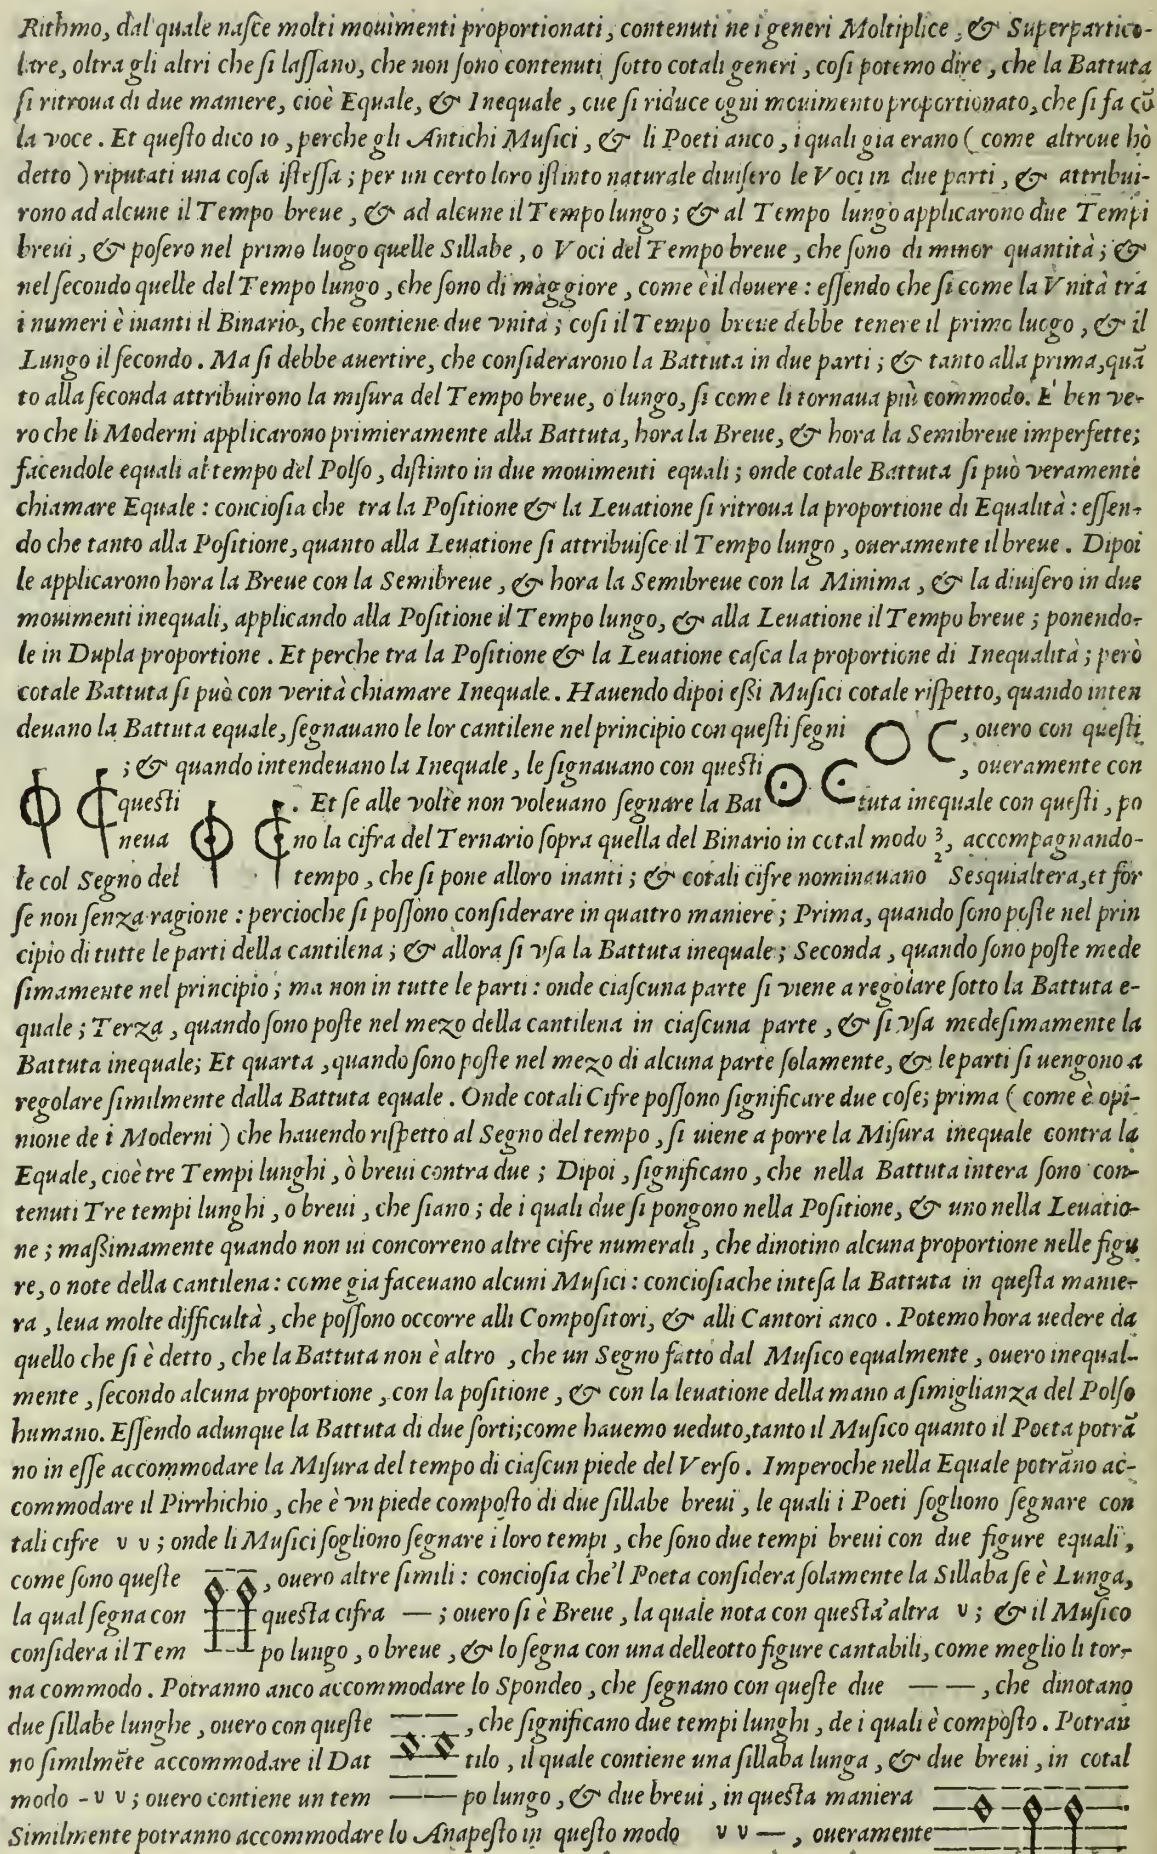 Rithmo, dal quale naſce molti mouimenti proportionati, contenuti ne i generi Moltiplice, & Superpartico-
lare, oltra gli altri che ſi laſſano, che non ſono contenuti ſotto cotali generi, coſi potemo dire, che la Battuta
ſi ritroua di due maniere, cioè Equale, & Inequale, oue ſi riduce ogni mouimento proportionato, che ſi fa cō
la voce. Et queſto dico io, perche gli Antichi Muſici, & li Poeti anco, i quali gia erano (come altroue hò
detto) riputati una coſa iſteſſa; per un certo loro iſtinto naturale diuiſero le Voci in due parti, & attribui-
rono ad alcune il Tempo breue, & ad alcune il Tempo lungo; & al Tempo lungo applicarono due Tempi
breui, & poſero nel primo luogo quelle Sillabe, o Voci del Tempo breue, che ſono di minor quantità; &
nel ſecondo quelle del Tempo lungo, che ſono di maggiore, come è il douere: eſſendo che ſi come la Vnità tra
i numeri è inanti il Binario, che contiene due vnità; coſi il Tempo breue debbe tenere il primo luogo, & il
Lungo il ſecondo. Ma ſi debbe auertire, che conſiderarono la Battuta in due parti; & tanto alla prima, quā
to alla ſeconda attribuirono la miſura del Tempo breue, o lungo, ſi come li tornaua più commodo. E' ben ve-
ro che li Moderni applicarono primieramente alla Battuta, hora la Breue, & hora la Semibreue imperfette;
facendole equali al tempo del Polſo, diſtinto in due mouimenti equali; onde cotale Battuta ſi può veramente
chiamare Equale: concioſia che tra la Poſitione & la Leuatione ſi ritroua la proportione di Equalità: eſſen-
do che tanto alla Poſitione, quanto alla Leuatione ſi attribuiſce il Tempo lungo, oueramente il breue. Dipoi
le applicarono hora la Breue con la Semibreue, & hora la Semibreue con la Minima, & la diuiſero in due
mouimenti inequali, applicando alla Poſitione il Tempo lungo, & alla Leuatione il Tempo breue; ponendo-
le in Dupla proportione. Et perche tra la Poſitione & la Leuatione caſca la proportione di Inequalità; però
cotale Battuta ſi può con verità chiamare Inequale. Hauendo dipoi eſsi Muſici cotale riſpetto, quando inten
deuano la Battuta equale, ſegnauano le lor cantilene nel principio con queſti ſegni , ouero con queſti
; & quando intendeuano la Inequale, le ſignauano con queſti , oueramente con
queſti . Et ſe alle volte non voleuano ſegnare la Bat tuta inequale con queſti, po
neua no la cifra del Ternario ſopra quella del Binario in cotal modo 3/2, accompagnando-
le col Segno del tempo, che ſi pone alloro inanti; & cotali cifre nominauano Sesquialtera, et for
ſe non ſenza ragione: percioche ſi poſſono conſiderare in quattro maniere; Prima, quando ſono poſte nel prin
cipio di tutte le parti della cantilena; & allora ſi vſa la Battuta inequale; Seconda, quando ſono poſte mede
ſimamente nel principio; ma non in tutte le parti: onde ciaſcuna parte ſi viene a regolare ſotto la Battuta e-
quale; Terza, quando ſono poſte nel mezo della cantilena in ciaſcuna parte, & ſi vſa medeſimamente la
Battuta inequale; Et quarta, quando ſono poſte nel mezo di alcuna parte ſolamente, & le parti ſi uengono a
regolare ſimilmente dalla Battuta equale. Onde cotali Cifre poſſono ſignificare due coſe; prima (come è opi-
nione de i Moderni) che hauendo riſpetto al Segno del tempo, ſi uiene a porre la Miſura inequale contra la
Equale, cioè tre Tempi lunghi, ò breui contra due; Dipoi, ſignificano, che nella Battuta intera ſono con-
tenuti Tre tempi lunghi, o breui, che ſiano; de i quali due ſi pongono nella Poſitione, & uno nella Leuatio-
ne; maſsimamente quando non ui concorreno altre cifre numerali, che dinotino alcuna proportione nelle figu
re, o note della cantilena: come gia faceuano alcuni Muſici: concioſiache inteſa la Battuta in queſta manie-
ra, leua molte difficultà, che poſſono occorre alli Compoſitori, & alli Cantori anco. Potemo hora uedere da
quello che ſi è detto, che la Battuta non è altro, che un Segno fatto dal Muſico equalmente, ouero inequal-
mente, ſecondo alcuna proportione, con la poſitione, & con la leuatione della mano a ſimiglianza del Polſo
humano. Eſſendo adunque la Battuta di due ſorti; come hauemo ueduto, tanto il Muſico quanto il Poeta potrā
no in eſſe accommodare la Miſura del tempo di ciaſcun piede del Verſo. Imperoche nella Equale potrāno ac-
commodare il Pirrhichio, che è vn piede compoſto di due ſillabe breui, le quali i Poeti ſogliono ſegnare con
tali cifre v v; onde li Muſici ſogliono ſegnare i loro tempi, che ſono due tempi breui con due figure equali,
come ſono queſte , ouero altre ſimili: concioſia che'l Poeta conſidera ſolamente la Sillaba ſe è Lunga,
la qual ſegna con queſta cifra —; ouero ſi è Breue, la quale nota con queſta altra v; & il Muſico
conſidera il Tem po lungo, o breue, & lo ſegna con una delle otto figure cantabili, come meglio li tor-
na commodo. Potranno anco accommodare lo Spondeo, che ſegnano con queſte due — —, che dinotano
due ſillabe lunghe, ouero con queſte , che ſignificano due tempi lunghi, de i quali è compoſto. Potran
no ſimilmēte accommodare il Dat tilo, il quale contiene una ſillaba lunga, & due breui, in cotal
modo - v v; ouero contiene un tem po lungo, & due breui, in queſta maniera
Similmente potranno accommodare lo Anapeſto in queſto modo v v —, oueramente